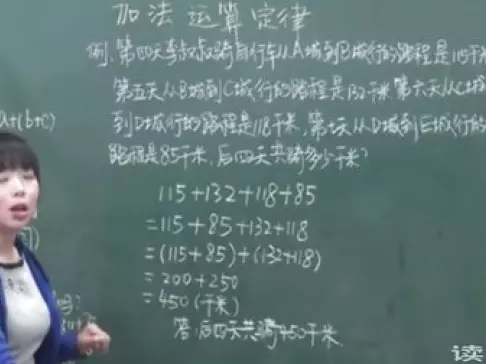 加法运算定律
例.第四天李叔叔骑自行车从A城到B城行的路程是115千米
第五天从B城到C城行的路程是132千米第六天从C城
a+(b+c)
到D城行的路程是118千米,第七天从D城到E城行的
路程是85千米,后四天共骑多少千米?
115+132+118+85
=115+85+132+118
=(115+85)+(132+118)
=200+250
=450(千米)
答:后四天共骑450千米
读